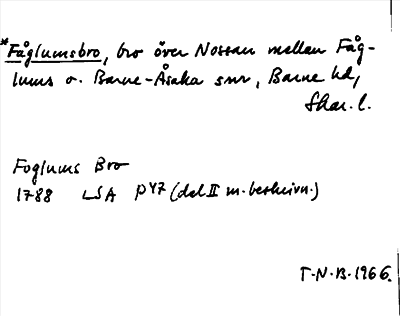 *Fåglumsbro, bro över Nossan mellan Fåg-
lums o. Barne-Åsaka snr, Barne hd,
Skar. l.
Foglums Bro
1788 LSA P47 (del II m. beskrivn.)
T.N.B. 1966.